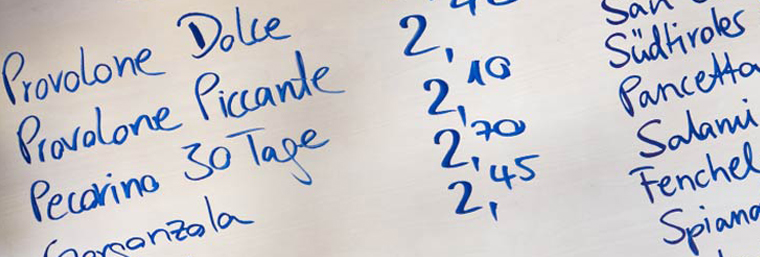 Provolone Dolce 2,
Provolone Piccante 2,10
Pecorino 30 Tage 2,70
Gorgonzola 2,45
San
Südtiroler
Pancetta
Salami
Fenchel
Spiana